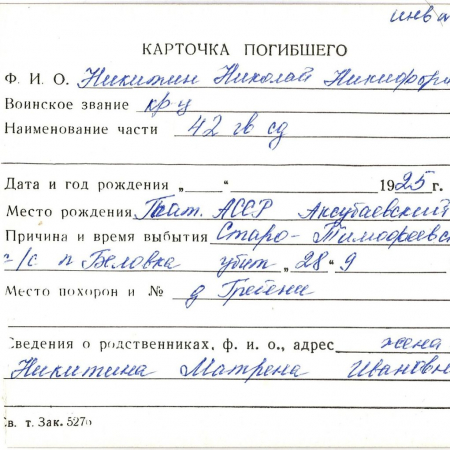 инв
КАРТОЧКА ПОГИБШЕГО
Ф. И. О. Никитин Николай Никифоро
Воинское звание кр-ц
Наименование части 42 гв сд
Дата и год рождения „ “ 1925 г.
Место рождения Тат. АССР Аксубаевский
Причина и время выбытия Старо-Тимофеевс
с/с п Беловка убит „28“ 9
Место похорон и № д Гребени
Сведения о родственниках, ф. и. о., адрес жена
Никитина Матрена Ивановн
Св. т. Зак. 527